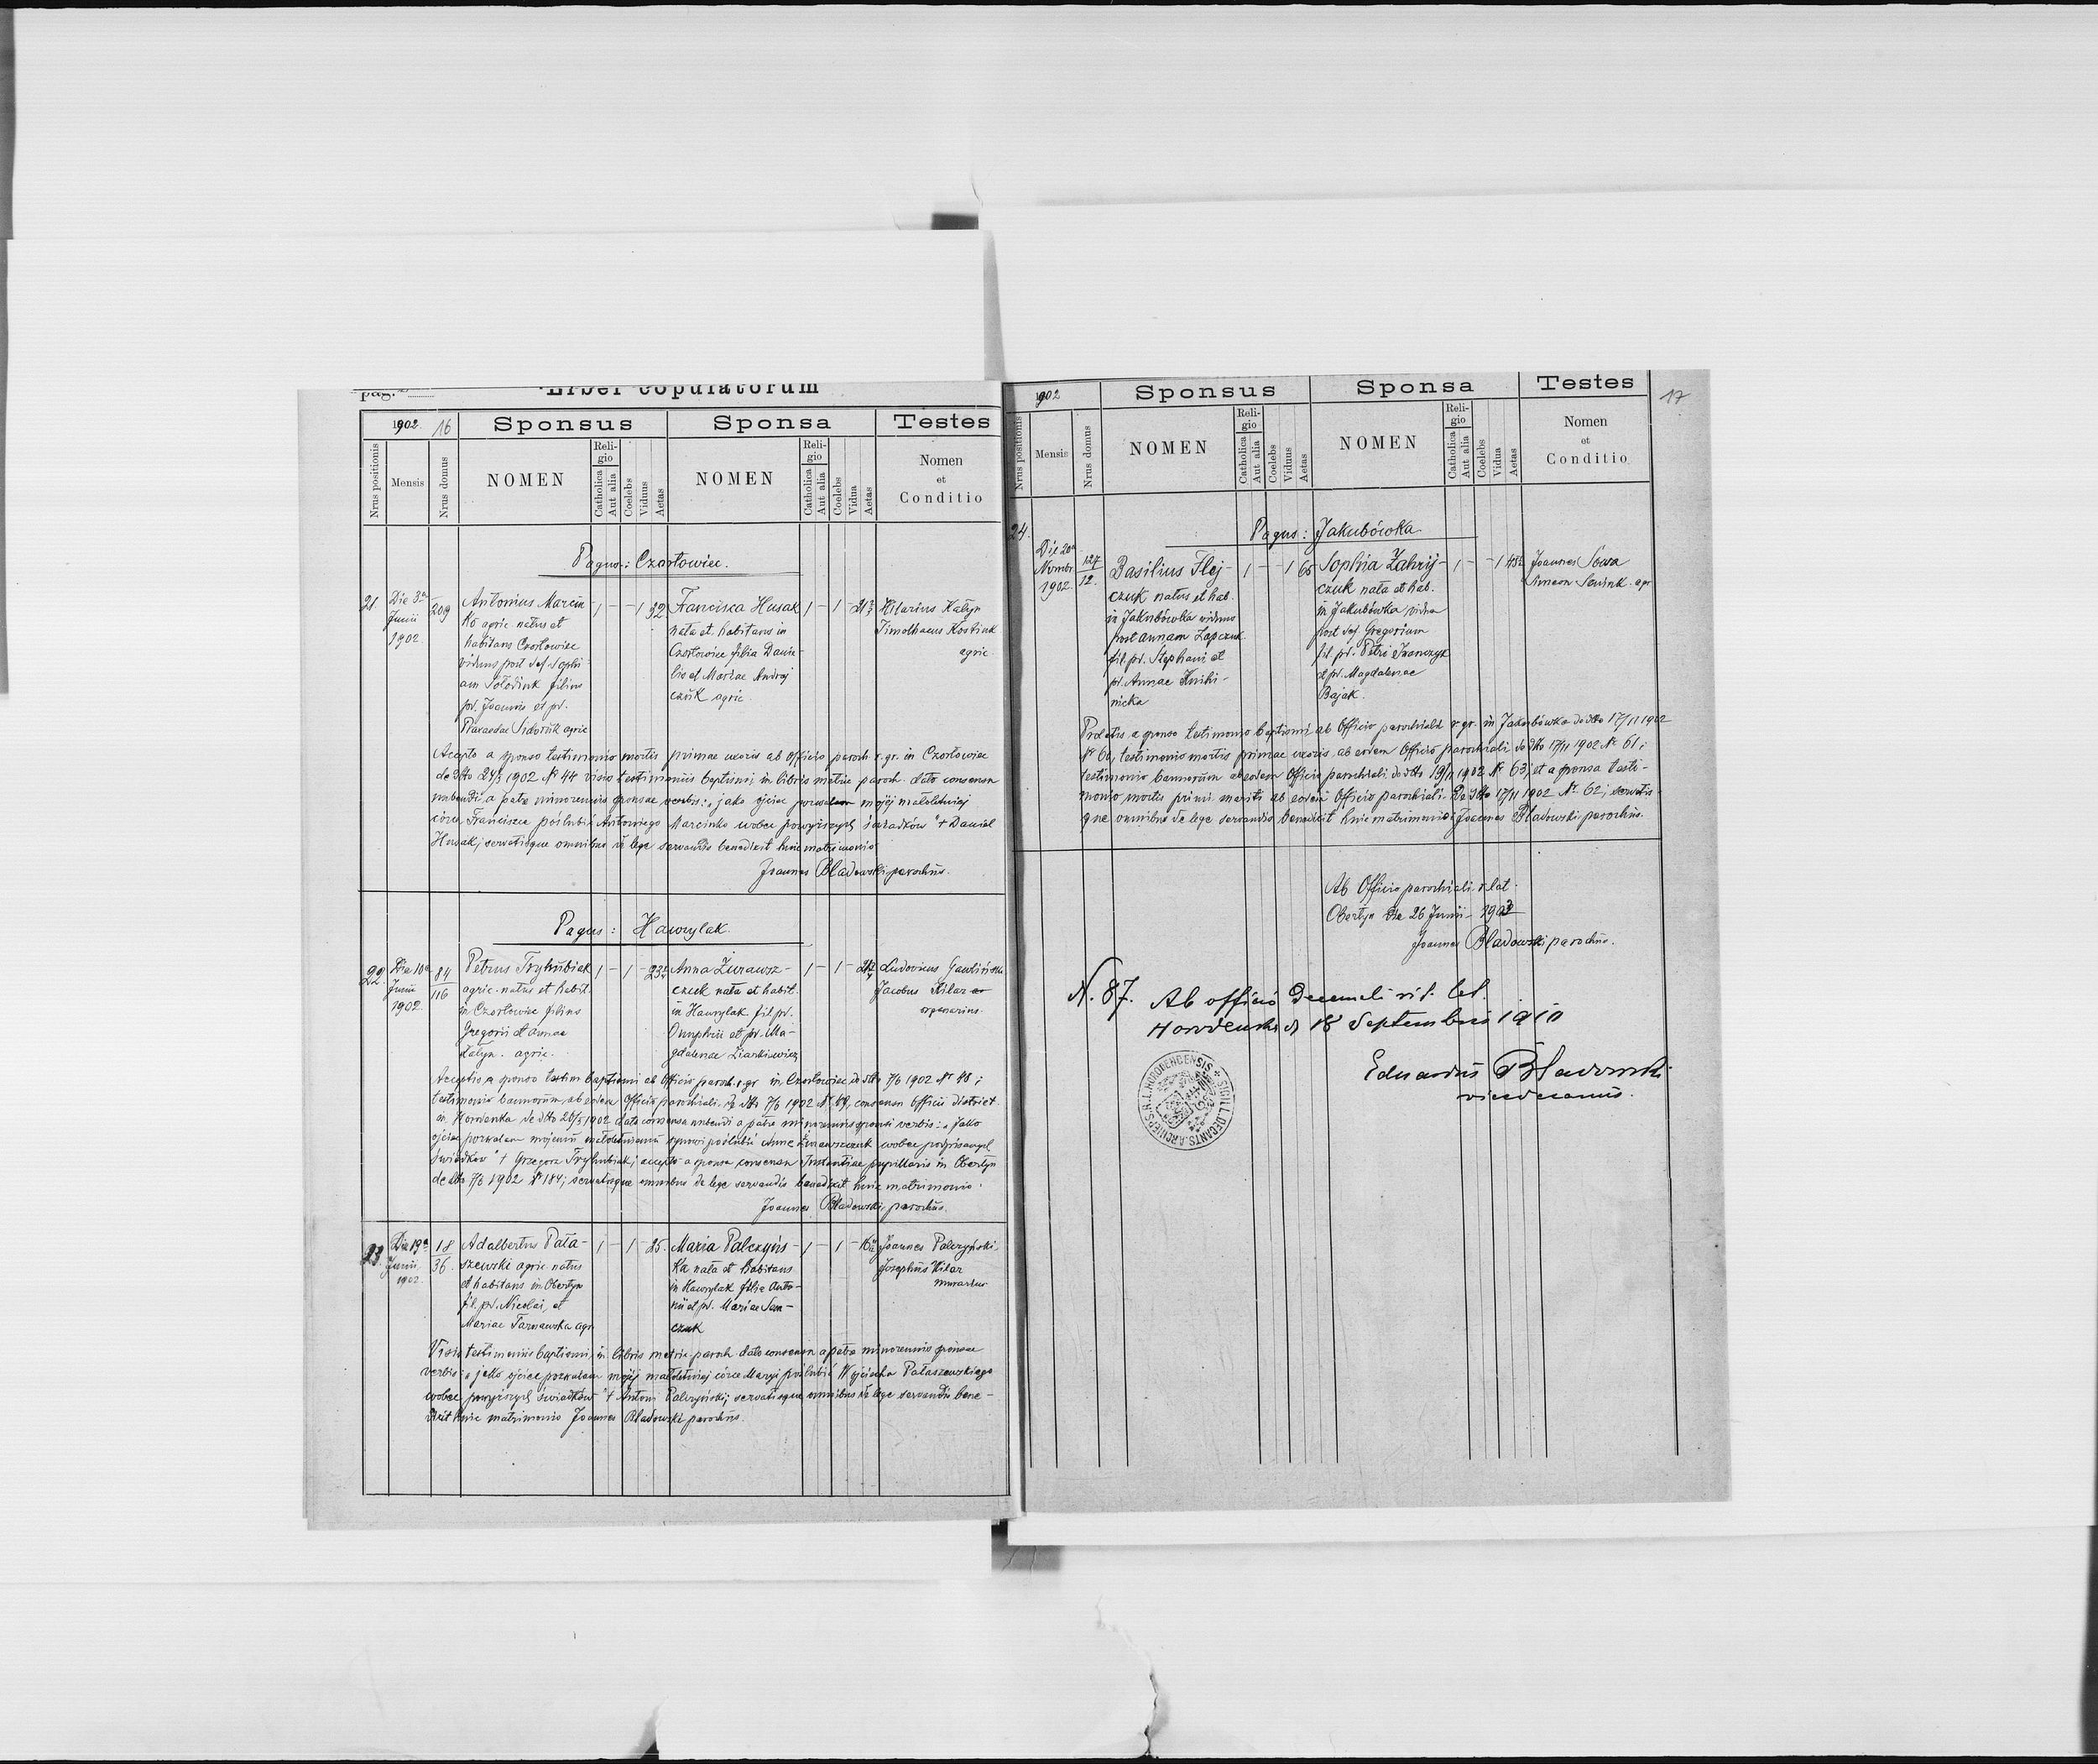 pag.
Liber copulatorum
1902. 16
Sponsus
Sponsa
Testes
Nrus positionis
Mensis
Nrus domus
NOMEN
Religio
Catholica
Aut alia
Coelebs
Viduus
Aetas
NOMEN
Religio
Catholica
Aut alia
Coelebs
Vidua
Aetas
Nomen
et
Conditio
Pagus: Czortowiec.
21.
Die 3a
Junii
1902.
209
Antonius Marcin-
ko agric natus et
habitans Czortowiec
viduus post def. Sophi-
am filius
pr. Joannis et pr.
agric
1 – – 1 32
Francisca Husak
nata et habitans in
Czortowiec filia Danie-
lis et Mariae Andrij
czuk agric.
1 – 1 –
Hilarius Kałyn
Timothaeus Kostiuk
agric
Accepto a sponso testimonio mortis primae uxoris ab Officio paroch. r. gr. in Czortowiec
de dtto 24/5 1902 No 44 visis testimoniis baptismi in libris metric paroch. dato consensu
nubendi a patre minorennis sponsae verbis: „jako ojciec pozwalam mojej małoletniej
córce Franciszce poślubić Antoniego Marcinko wobec powyższych świadków" + Daniel
Husak; servatisque omnibus de lege servandis benedixit huic matrimonio
Joannes Bładowski parochus.
Pagus: Hawrylak.
22.
Die 10a
Junii
1902.
84
116
Petrus Tryhubiak
agric. natus et habit.
in Czortowiec filius
Gregorii et Annae
Kałyn. agric.
1 – 1 –
Anna Żurawsz-
czuk nata et habit.
in Hawrylak fil. pr.
Onuphrii et pr. Ma-
gdalenae
1 – 1 –
Ludovicus
Jacobus Kilar
organarius.
Accepto a sponso testim baptismi ab Officio paroch. r. gr in Czortowiec de dtto 7/6 1902 No 48;
testimonio bannorum, ab eodem Officio parochiali de dtto 7/6 1902 No 49, consensu Officii district.
in Horodenka de dtto 26/5 1902 dato consensu nubendi a patre minorennis sponsi verbis: „jako
ojciec pozwalam mojemu małoletniemu synowi poślubić Annę Żurawszczuk wobec podpisanych
świadków" + Grzegorz Tryhubiak; accepto a sponsa consensu Instantiae pupillaris in Obertyn
de dtto 7/6 1902 No 184; servatisque omnibus de lege servandis benedixit huic matrimonio.
Joannes Bładowski, parochus.
23.
Die 19a
Junii
1902.
18
36.
Adalbertus Pała-
szewski agric natus
et habitans in Obertyn
fil. pr. Nicolai, et
Mariae Tarnawska agr.
1 – 1 – 25.
Maria Palczyńs-
ka nata et habitans
in Hawrylak filia Anto-
nii et pr. Mariae Sen-
czuk
1 – 1 –
Joannes Palczyński,
Josephus Kilar
murarius
Visis testimoniis baptismi in libris metric paroch. dato consensu a patre minorennis sponsae
verbis: „jako ojciec pozwalam mojej małoletniej córce Maryi poślubić Wojciecha Pałaszewskiego
wobec powyższych świadków" + Antoni Palczyński; servatisque omnibus de lege servandis bene-
dixit huic matrimonio Joannes Bładowski parochus.
1902
17
Sponsus
Sponsa
Testes
Nrus positionis
Mensis
Nrus domus
NOMEN
Religio
Catholica
Aut alia
Coelebs
Viduus
Aetas
NOMEN
Religio
Catholica
Aut alia
Coelebs
Vidua
Aetas
Nomen
et
Conditio
Pagus: Jakubówka.
24.
Die 20a
Novmbr.
1902.
127
12.
Basilius Flej-
czuk natus et hab.
in Jakubówka viduus
post Annam Łapczuk.
fil. pr. Stephani et
pr. Annae Knihi-
nicka
1 – – 1 66
Sophia Zahrij-
czuk nata et hab.
in Jakubówka, vidua
post def. Gregorium
fil. pr. Petri Iwanczyk
et pr. Magdalenae
Bajak.
1 – – 1
Joannes Sowa
Simeon agr
Prolatis a sponso testimonio baptismi ab Officio parochiali r. gr. in Jakubówka de dtto 17/11 1902
No 60, testimonio mortis primae uxoris, ab eodem Officio parochiali de dtto 17/11 1902 No 61;
testimonio bannorum ab eodem Officio parochiali de dtto 19/11 1902 No 63; et a sponsa testi-
monio mortis primi mariti ab eodem Officio parochiali De dtto 17/11 1902 No 62; servatis-
que omnibus de lege servandis benedixit huic matrimonio Joannes Bładowski parochus.
Ab Officio parochiali r. lat.
Obertyn die 26 Junii 1903
Joannes Bładowski parochus.
N. 87. Ab officio Decanali rit. lat.
Horodenka d 18 Septembris 1910
Eduardus Bładowski
vicedecanus.
SIGILL. DECANTS. ARCHIEP. R. L. HORODENCENSIS